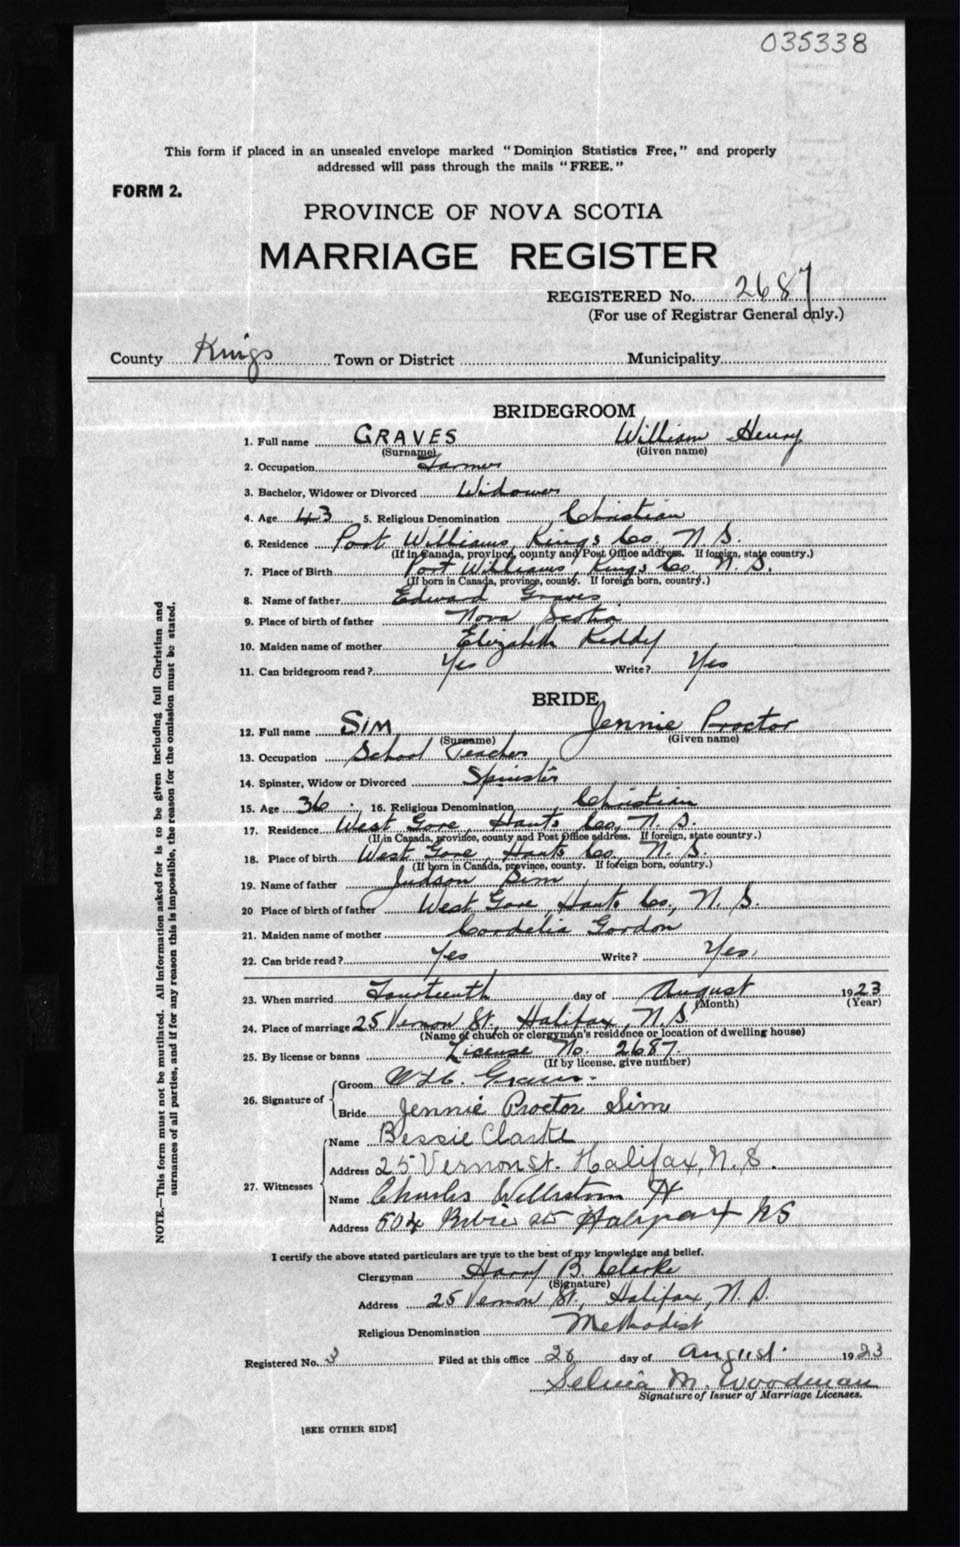 035338
This form if placed in an unsealed envelope marked "Dominion Statistics Free," and properly
addressed will pass through the mails "FREE."
FORM 2.
PROVINCE OF NOVA SCOTIA
MARRIAGE REGISTER
REGISTERED No. 2687
(For use of Registrar General only.)
County Kings Town or District Municipality
BRIDEGROOM
1. Full name GRAVES William Henry
(Surname) (Given name)
2. Occupation Farmer
3. Bachelor, Widower or Divorced Widower
4. Age 43 5. Religious Denomination Christian
6. Residence Port Williams, Kings Co, N.S.
(If in Canada, province, county and Post Office address. If foreign, state country.)
7. Place of Birth Port Williams, Kings Co. N.S.
(If born in Canada, province, county. If foreign born, country.)
8. Name of father Edward Graves
9. Place of birth of father Nova Scotia
10. Maiden name of mother Elizabeth Keddy
11. Can bridegroom read? Yes Write? Yes
BRIDE
12. Full name SIM Jennie Proctor
(Surname) (Given name)
13. Occupation School Teacher
14. Spinster, Widow or Divorced Spinster
15. Age 36 16. Religious Denomination Christian
17. Residence West Gore, Hants Co, N.S.
(If in Canada, province, county and Post Office address. If foreign, state country.)
18. Place of birth West Gore, Hants Co, N.S.
(If born in Canada, province, county. If foreign born, country.)
19. Name of father Judson Sim
20 Place of birth of father West Gore, Hants Co., N.S.
21. Maiden name of mother Cordelia Gordon
22. Can bride read? Yes Write? Yes
23. When married Fourteenth day of August 1923
(Month) (Year)
24. Place of marriage 25 Vernon St, Halifax, N.S.
(Name of church or clergyman's residence or location of dwelling house)
25. By license or banns License No. 2687.
(If by license, give number)
26. Signature of
Groom W.H. Graves
Bride Jennie Proctor Sim
27. Witnesses
Name Bessie Clarke
Address 25 Vernon St. Halifax, N.S.
Name Charles
Address 504 Halifax NS
I certify the above stated particulars are true to the best of my knowledge and belief.
Clergyman Harry B. Clarke
(Signature)
Address 25 Vernon St., Halifax, N.S.
Religious Denomination Methodist
Registered No. 3 Filed at this office day of August 1923
M. Woodman
Signature of Issuer of Marriage Licenses.
[SEE OTHER SIDE]
NOTE.—This form must not be mutilated. All information asked for is to be given including full Christian and
surnames of all parties, and if for any reason this is impossible, the reason for the omission must be stated.